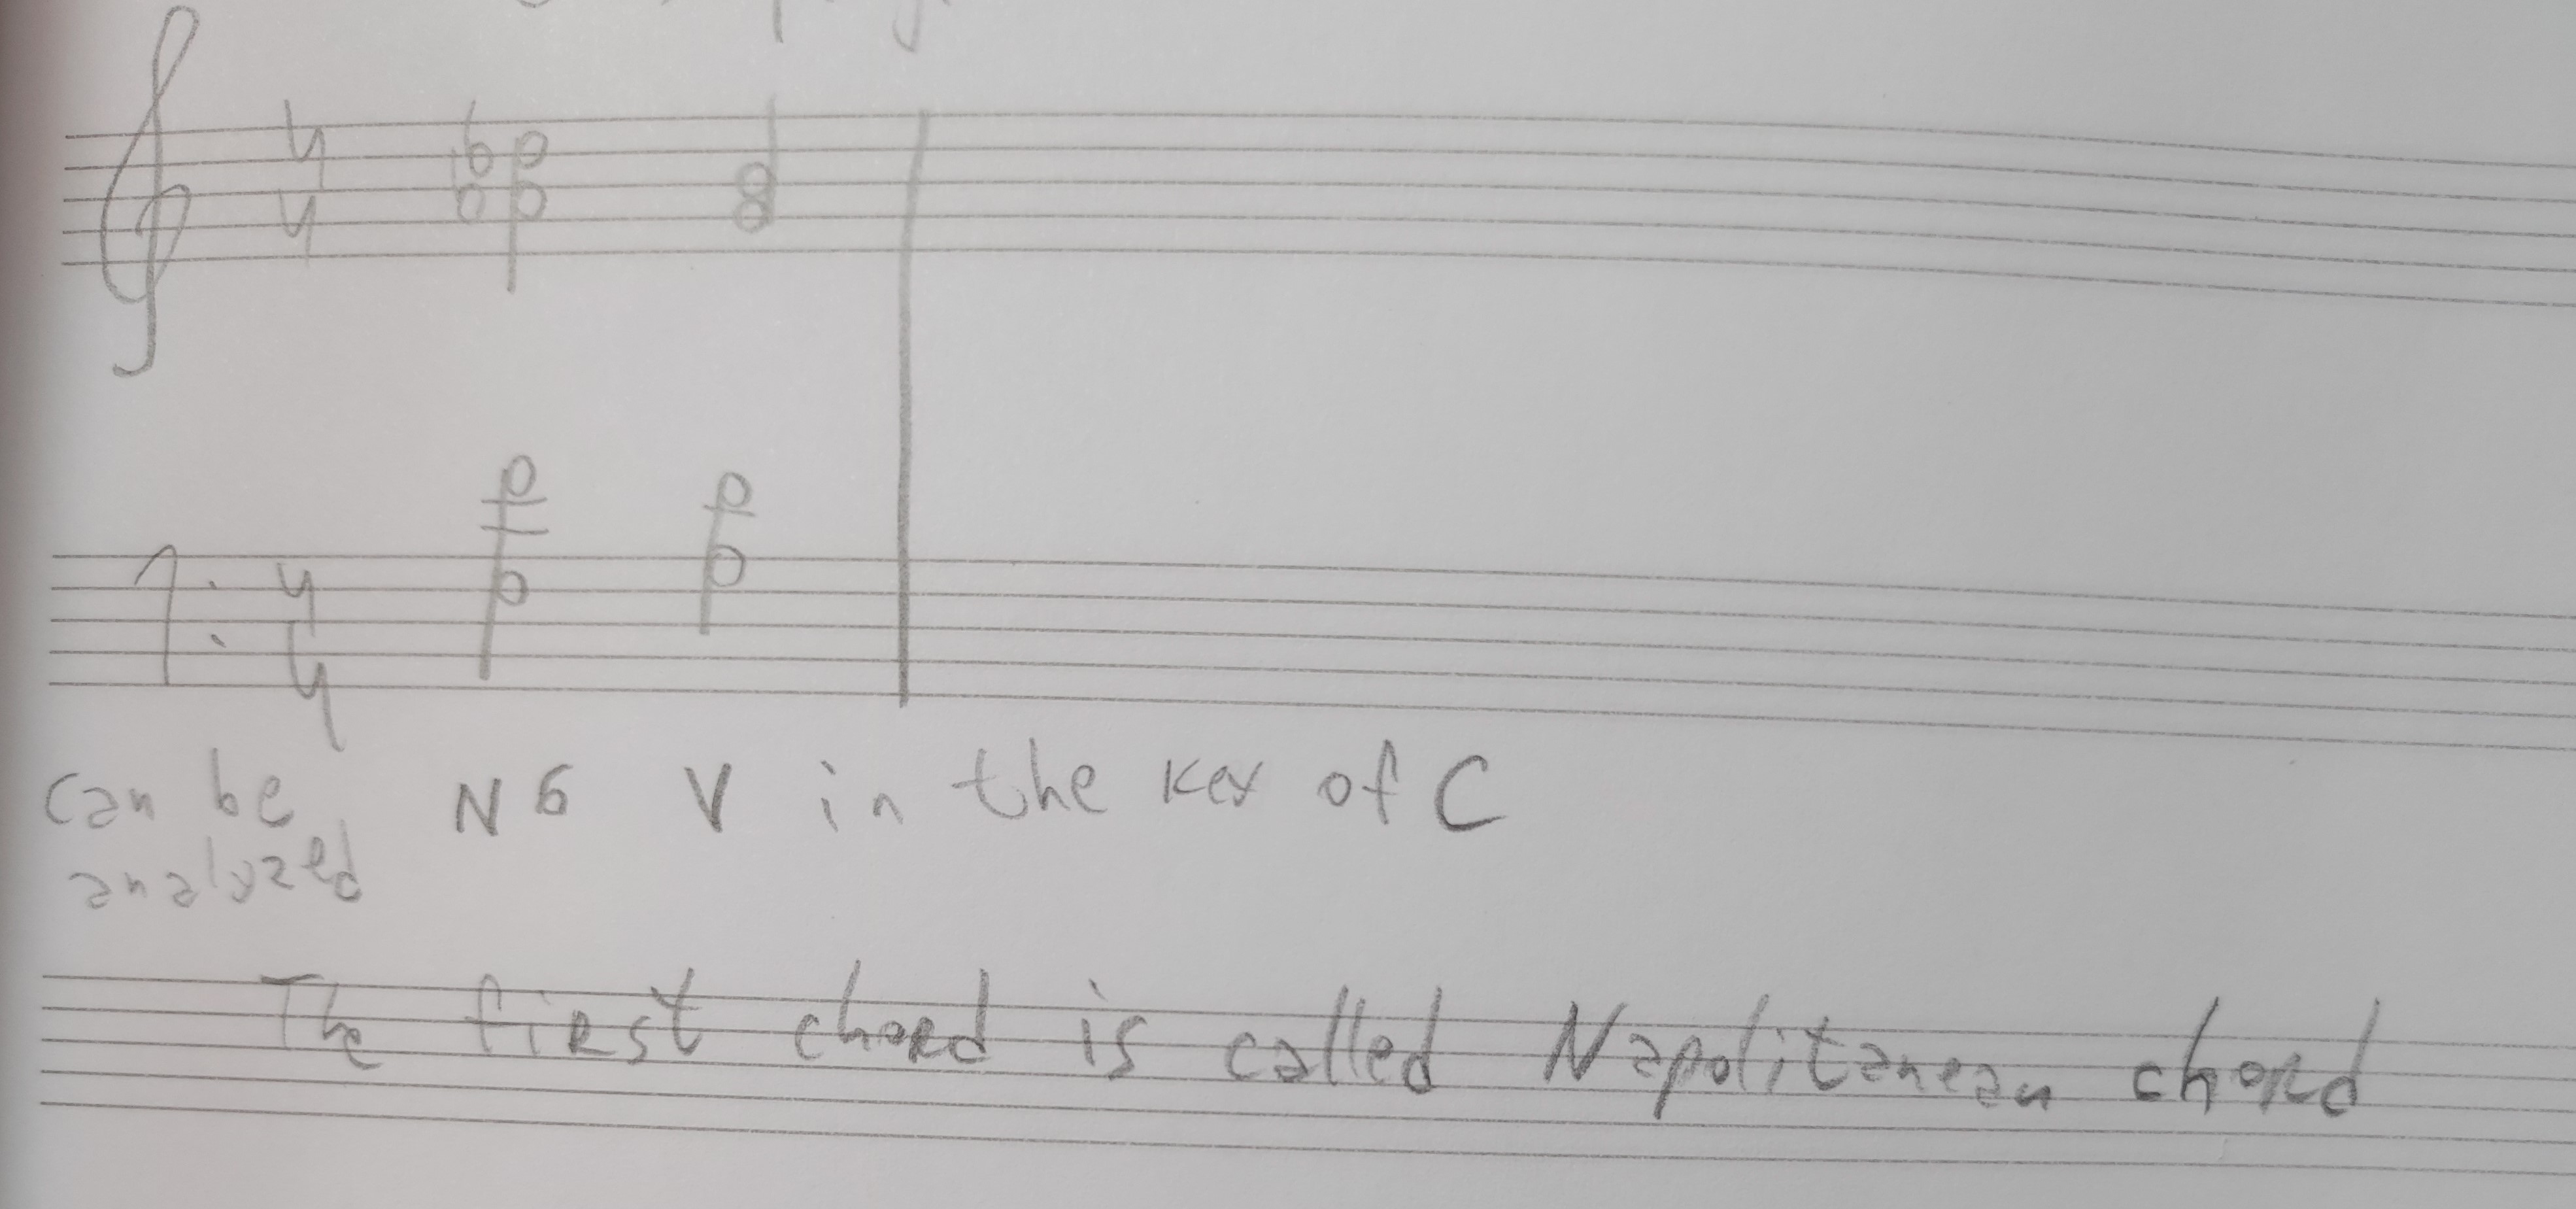 4
4
4
4
can be N 6 V in the key of C
analyzed
The first chord is called Napolitanean chord